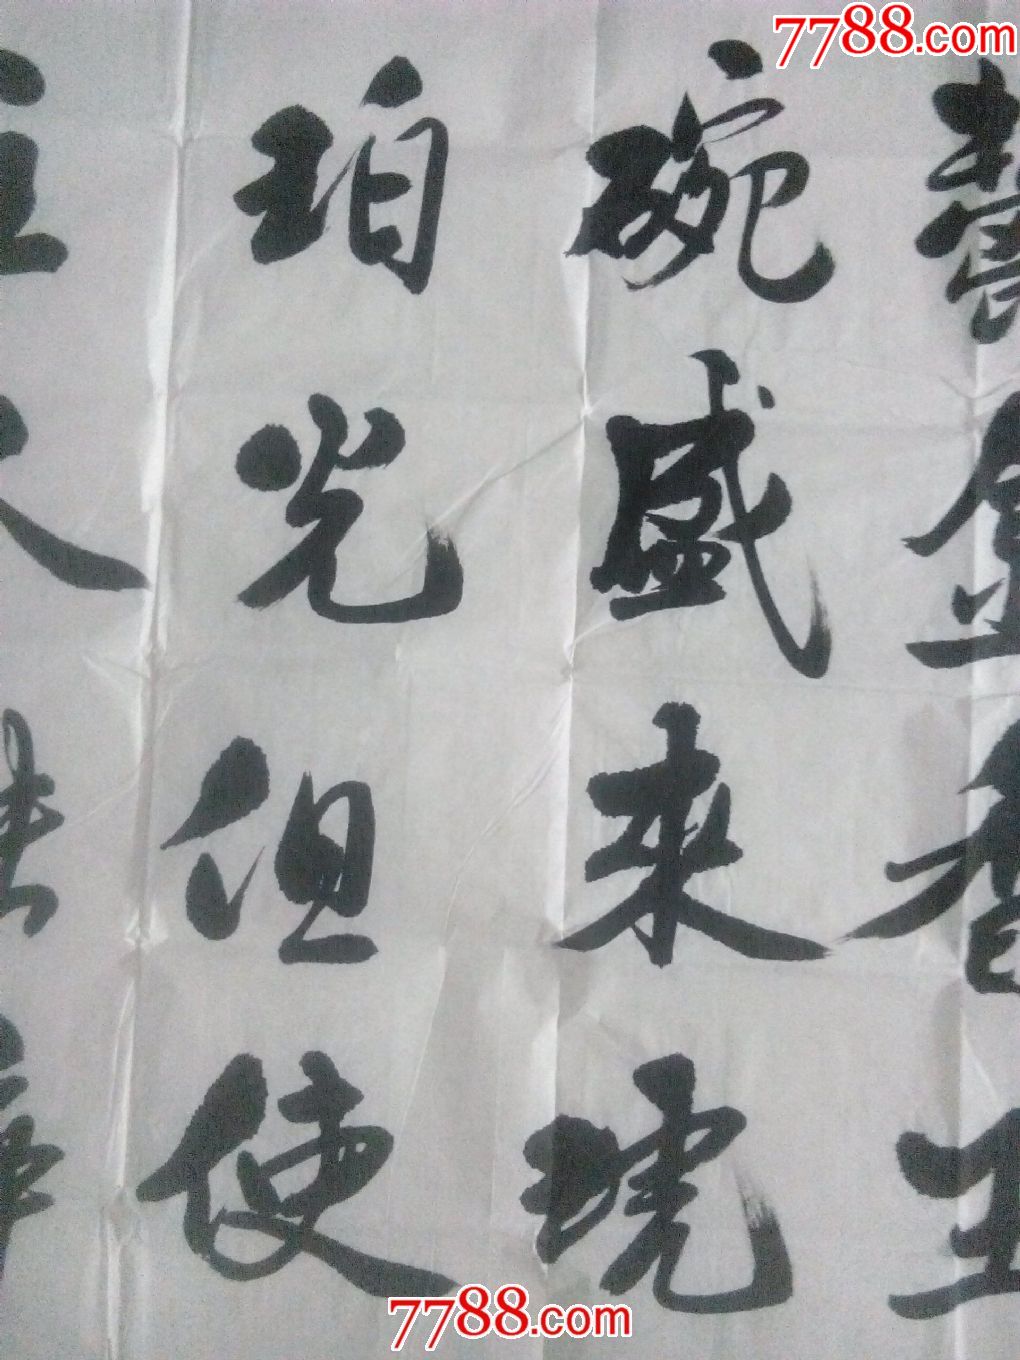 7788.com
鬱金香玉
碗盛来琥
珀光但使
主人
7788.com